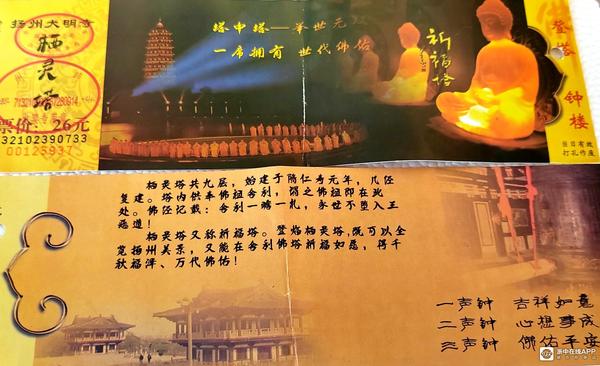 扬州大明寺
栖灵塔
票价：26元
32102390733
塔中塔——举世无双
一席拥有 世代佛佑
祈福塔
登塔
钟楼
当日有效
打孔作废
栖灵塔共九层，始建于隋仁寿元年，几经
复建。塔内供奉佛祖舍利，谓之佛祖即在此
处。佛经记载：舍利一瞻一礼，永世不堕入王
恶道！
栖灵塔又称祈福塔。登临栖灵塔，既可以全
览扬州美景，又能在舍利佛塔祈福如愿，得千
秋福泽、万代佛佑！
一声钟 吉祥如意
二声钟 心想事成
三声钟 佛佑平安
浙中在线APP